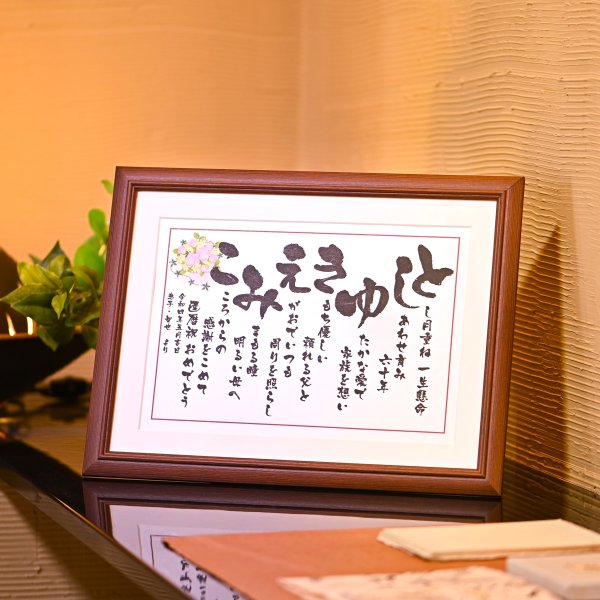 とし月重ね 一生懸命
しあわせ育み
六十年
ゆたかな愛で
家族を想い
きもち優しい
頼れる父と
えがおでいつも
周りを照らし
みまもる瞳
明るい母の
こころからの
感謝をこめて
還暦祝おめでとう
令和四年五月吉日
より